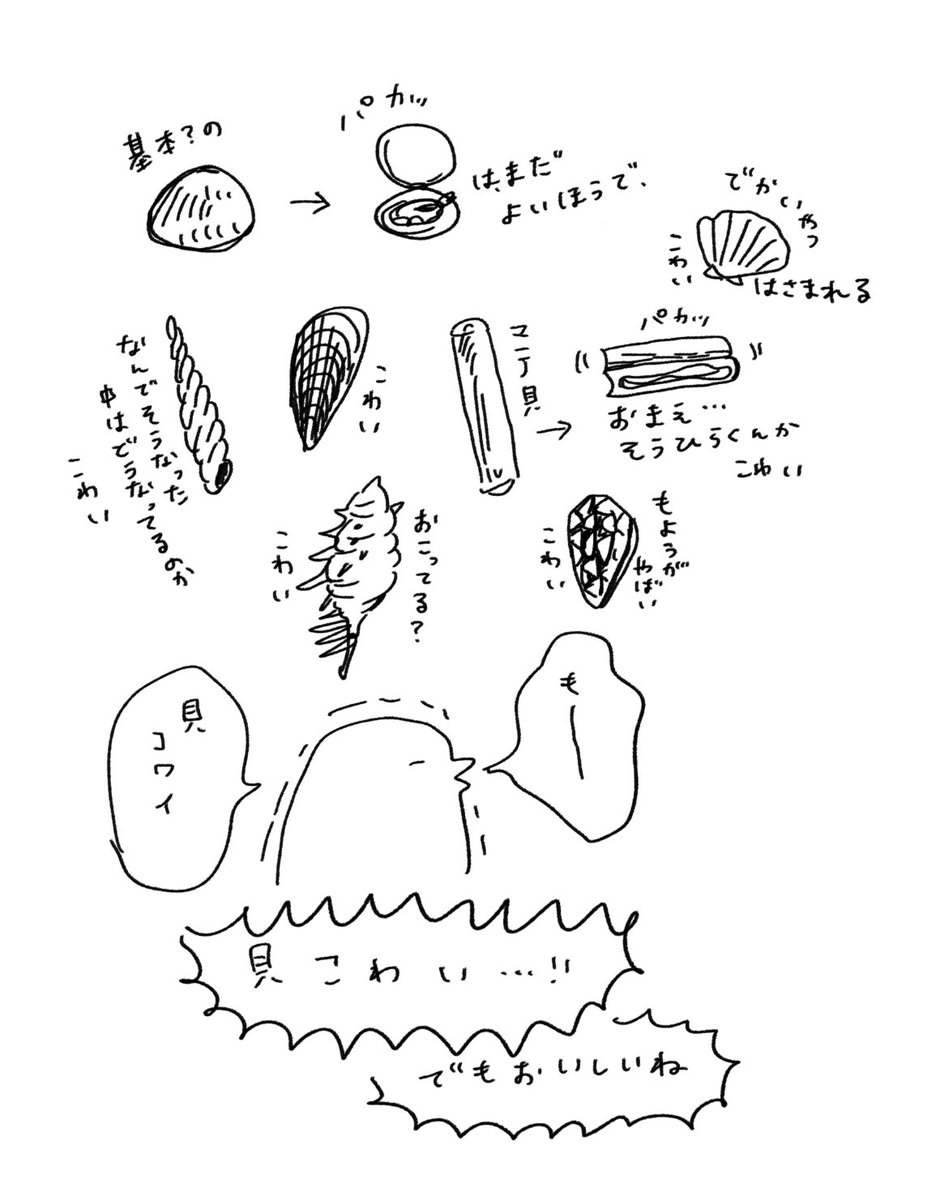 基本?の
パカッ
は、まだ
よいほうで、
でかいやつ
こわい
はさまれる
なんでそうなった
中はどうなってるのか
こわい
こわい
マテ貝
パカッ
おまえ…
そうひらくんか
こわい
おこってる?
こわい
もようが
やばい
こわい
も｜
貝
コワイ
貝こわい…!!
でもおいしいね